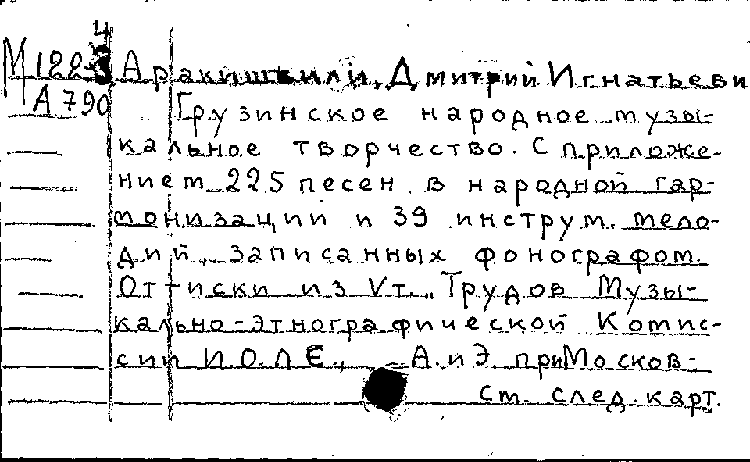 М122 4
А790
Аракишвили, Дмитрий Игнатьеви
Грузинское народное музы-
кальное творчество. С приложе-
нием 225 песен в народной гар-
монизации и 39 инструм. мело-
дий, записанных фонографом.
Оттиски из V т. „Трудов Музы-
кально-этнографической Комис-
сии И.О.Л.Е., А. и Э. при Москов-
См. след. карт.